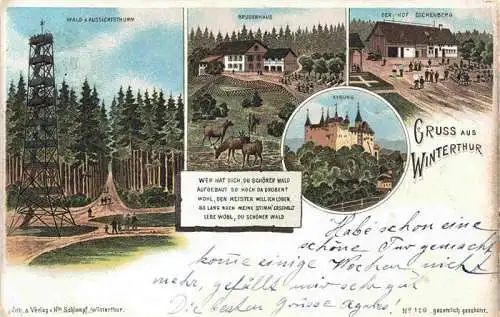 WALD & AUSSICHTSTHURM
BRUDERHAUS
REST. HOF ESCHENBERG
KYBURG
GRUSS AUS
WINTERTHUR
WER HAT DICH, DU SCHÖNER WALD
AUFGEBAUT SO HOCH DA DROBEN?
WOHL, DEN MEISTER WILL ICH LOBEN,
SO LANG NOCH MEINE STIMM' ERSCHALLT
LEBE WOHL, DU SCHÖNER WALD
Habe schon eine
schöne Tur gemacht,
kome einige Wochen nicht
mehr, gefällt mir sehr gut
Die besten Grüsse Agalas!
Lith. & Verlag v. Hch. Schlumpf, Winterthur.
No 120. gesetzlich geschützt.